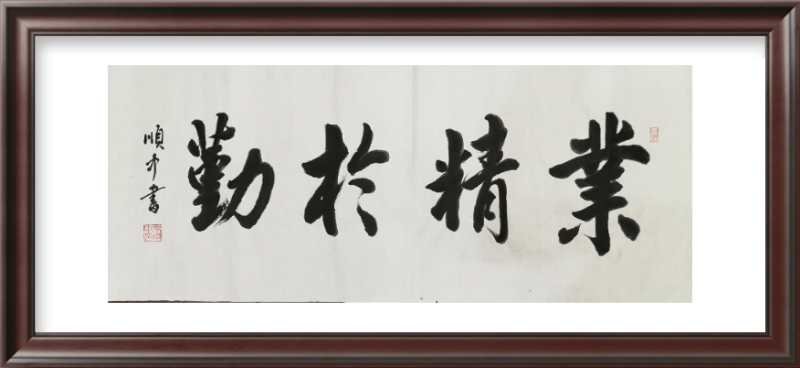 業精於勤
順才書